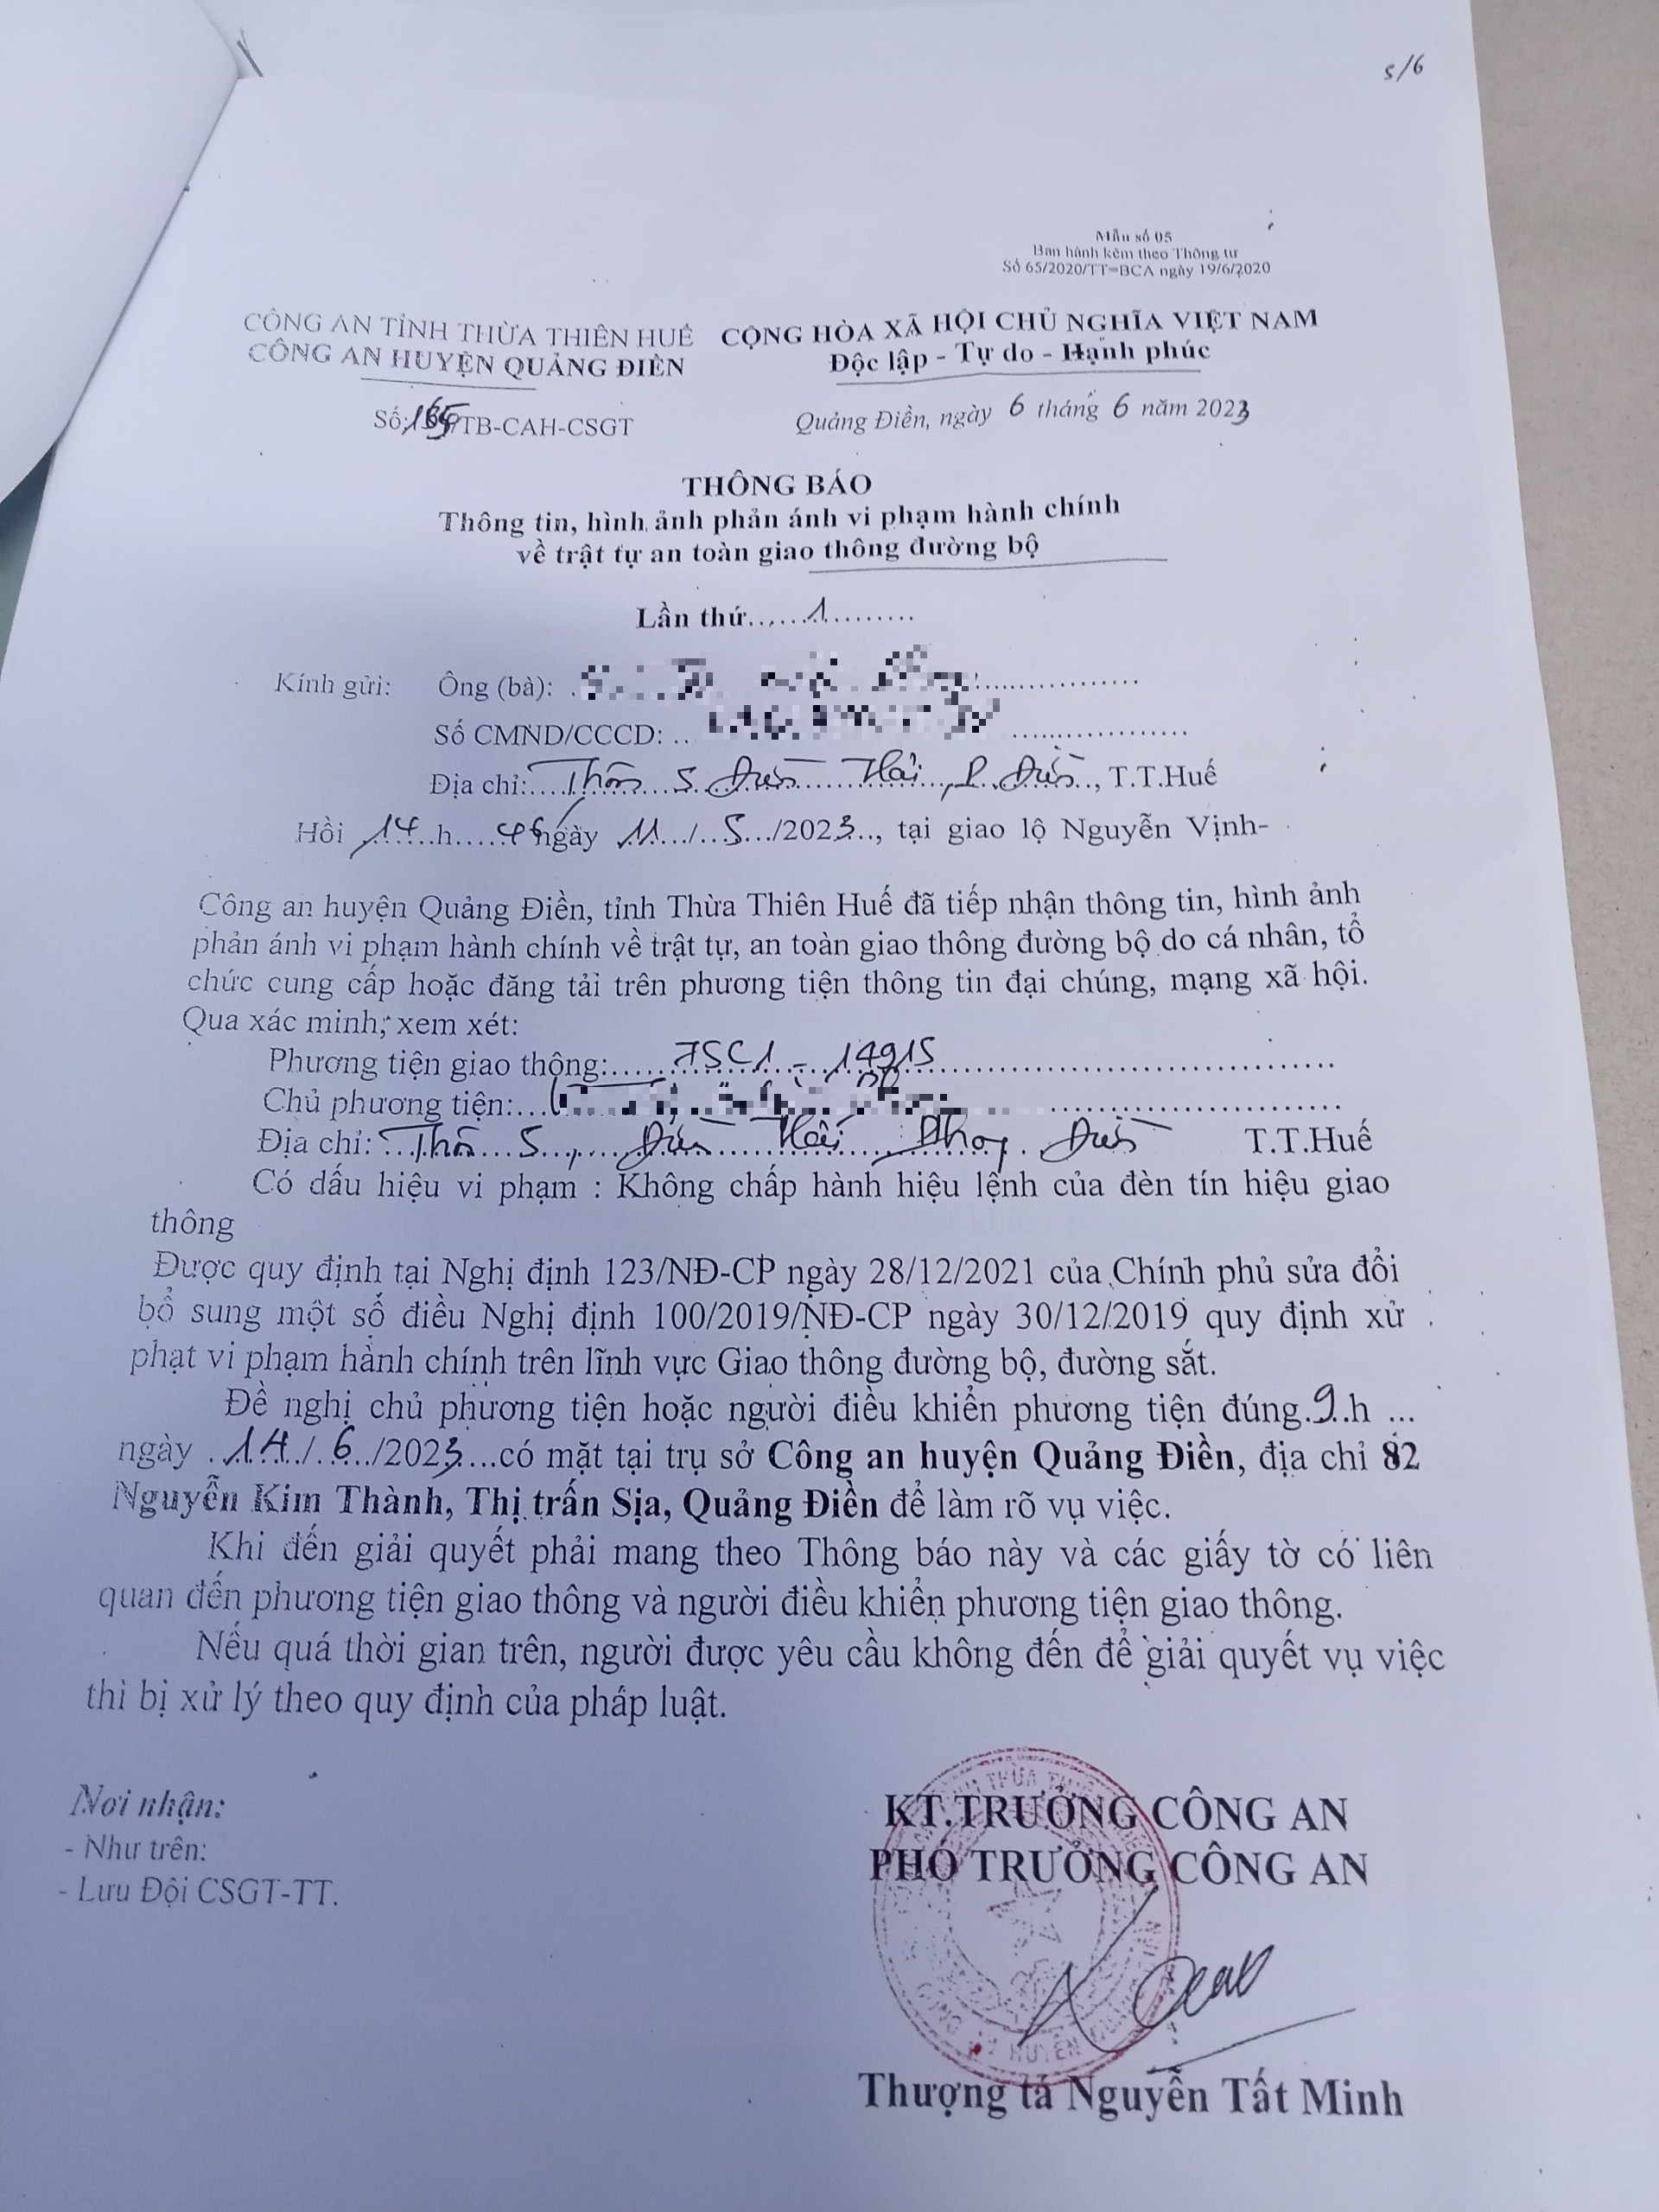 5/6
Mẫu số 05
Ban hành kèm theo Thông tư
Số 65/2020/TT-BCA ngày 19/6/2020
CÔNG AN TỈNH THỪA THIÊN HUẾ
CÔNG AN HUYỆN QUẢNG ĐIỀN
CỘNG HÒA XÃ HỘI CHỦ NGHĨA VIỆT NAM
Độc lập - Tự do - Hạnh phúc
Số: /TB-CAH-CSGT
Quảng Điền, ngày 6 tháng 6 năm 2023
THÔNG BÁO
Thông tin, hình ảnh phản ánh vi phạm hành chính
về trật tự an toàn giao thông đường bộ
Lần thứ......1.........
Kính gửi: Ông (bà):
Số CMND/CCCD:
Địa chỉ: Thôn 5 Điền Hải, P. Điền, T.T.Huế
Hồi 14 h 46 ngày 11/5/2023, tại giao lộ Nguyễn Vịnh-
Công an huyện Quảng Điền, tỉnh Thừa Thiên Huế đã tiếp nhận thông tin, hình ảnh
phản ánh vi phạm hành chính về trật tự, an toàn giao thông đường bộ do cá nhân, tổ
chức cung cấp hoặc đăng tải trên phương tiện thông tin đại chúng, mạng xã hội.
Qua xác minh, xem xét:
Phương tiện giao thông: 75C1 - 14915
Chủ phương tiện:
Địa chỉ: Thôn 5, Điền Hải, Phong Điền T.T.Huế
Có dấu hiệu vi phạm : Không chấp hành hiệu lệnh của đèn tín hiệu giao
thông
Được quy định tại Nghị định 123/NĐ-CP ngày 28/12/2021 của Chính phủ sửa đổi
bổ sung một số điều Nghị định 100/2019/NĐ-CP ngày 30/12/2019 quy định xử
phạt vi phạm hành chính trên lĩnh vực Giao thông đường bộ, đường sắt.
Đề nghị chủ phương tiện hoặc người điều khiển phương tiện đúng 9 h ...
ngày 14/6/2023 có mặt tại trụ sở Công an huyện Quảng Điền, địa chỉ 82
Nguyễn Kim Thành, Thị trấn Sịa, Quảng Điền để làm rõ vụ việc.
Khi đến giải quyết phải mang theo Thông báo này và các giấy tờ có liên
quan đến phương tiện giao thông và người điều khiển phương tiện giao thông.
Nếu quá thời gian trên, người được yêu cầu không đến để giải quyết vụ việc
thì bị xử lý theo quy định của pháp luật.
Nơi nhận:
- Như trên:
- Lưu Đội CSGT-TT.
KT.TRƯỞNG CÔNG AN
PHÓ TRƯỞNG CÔNG AN
Thượng tá Nguyễn Tất Minh